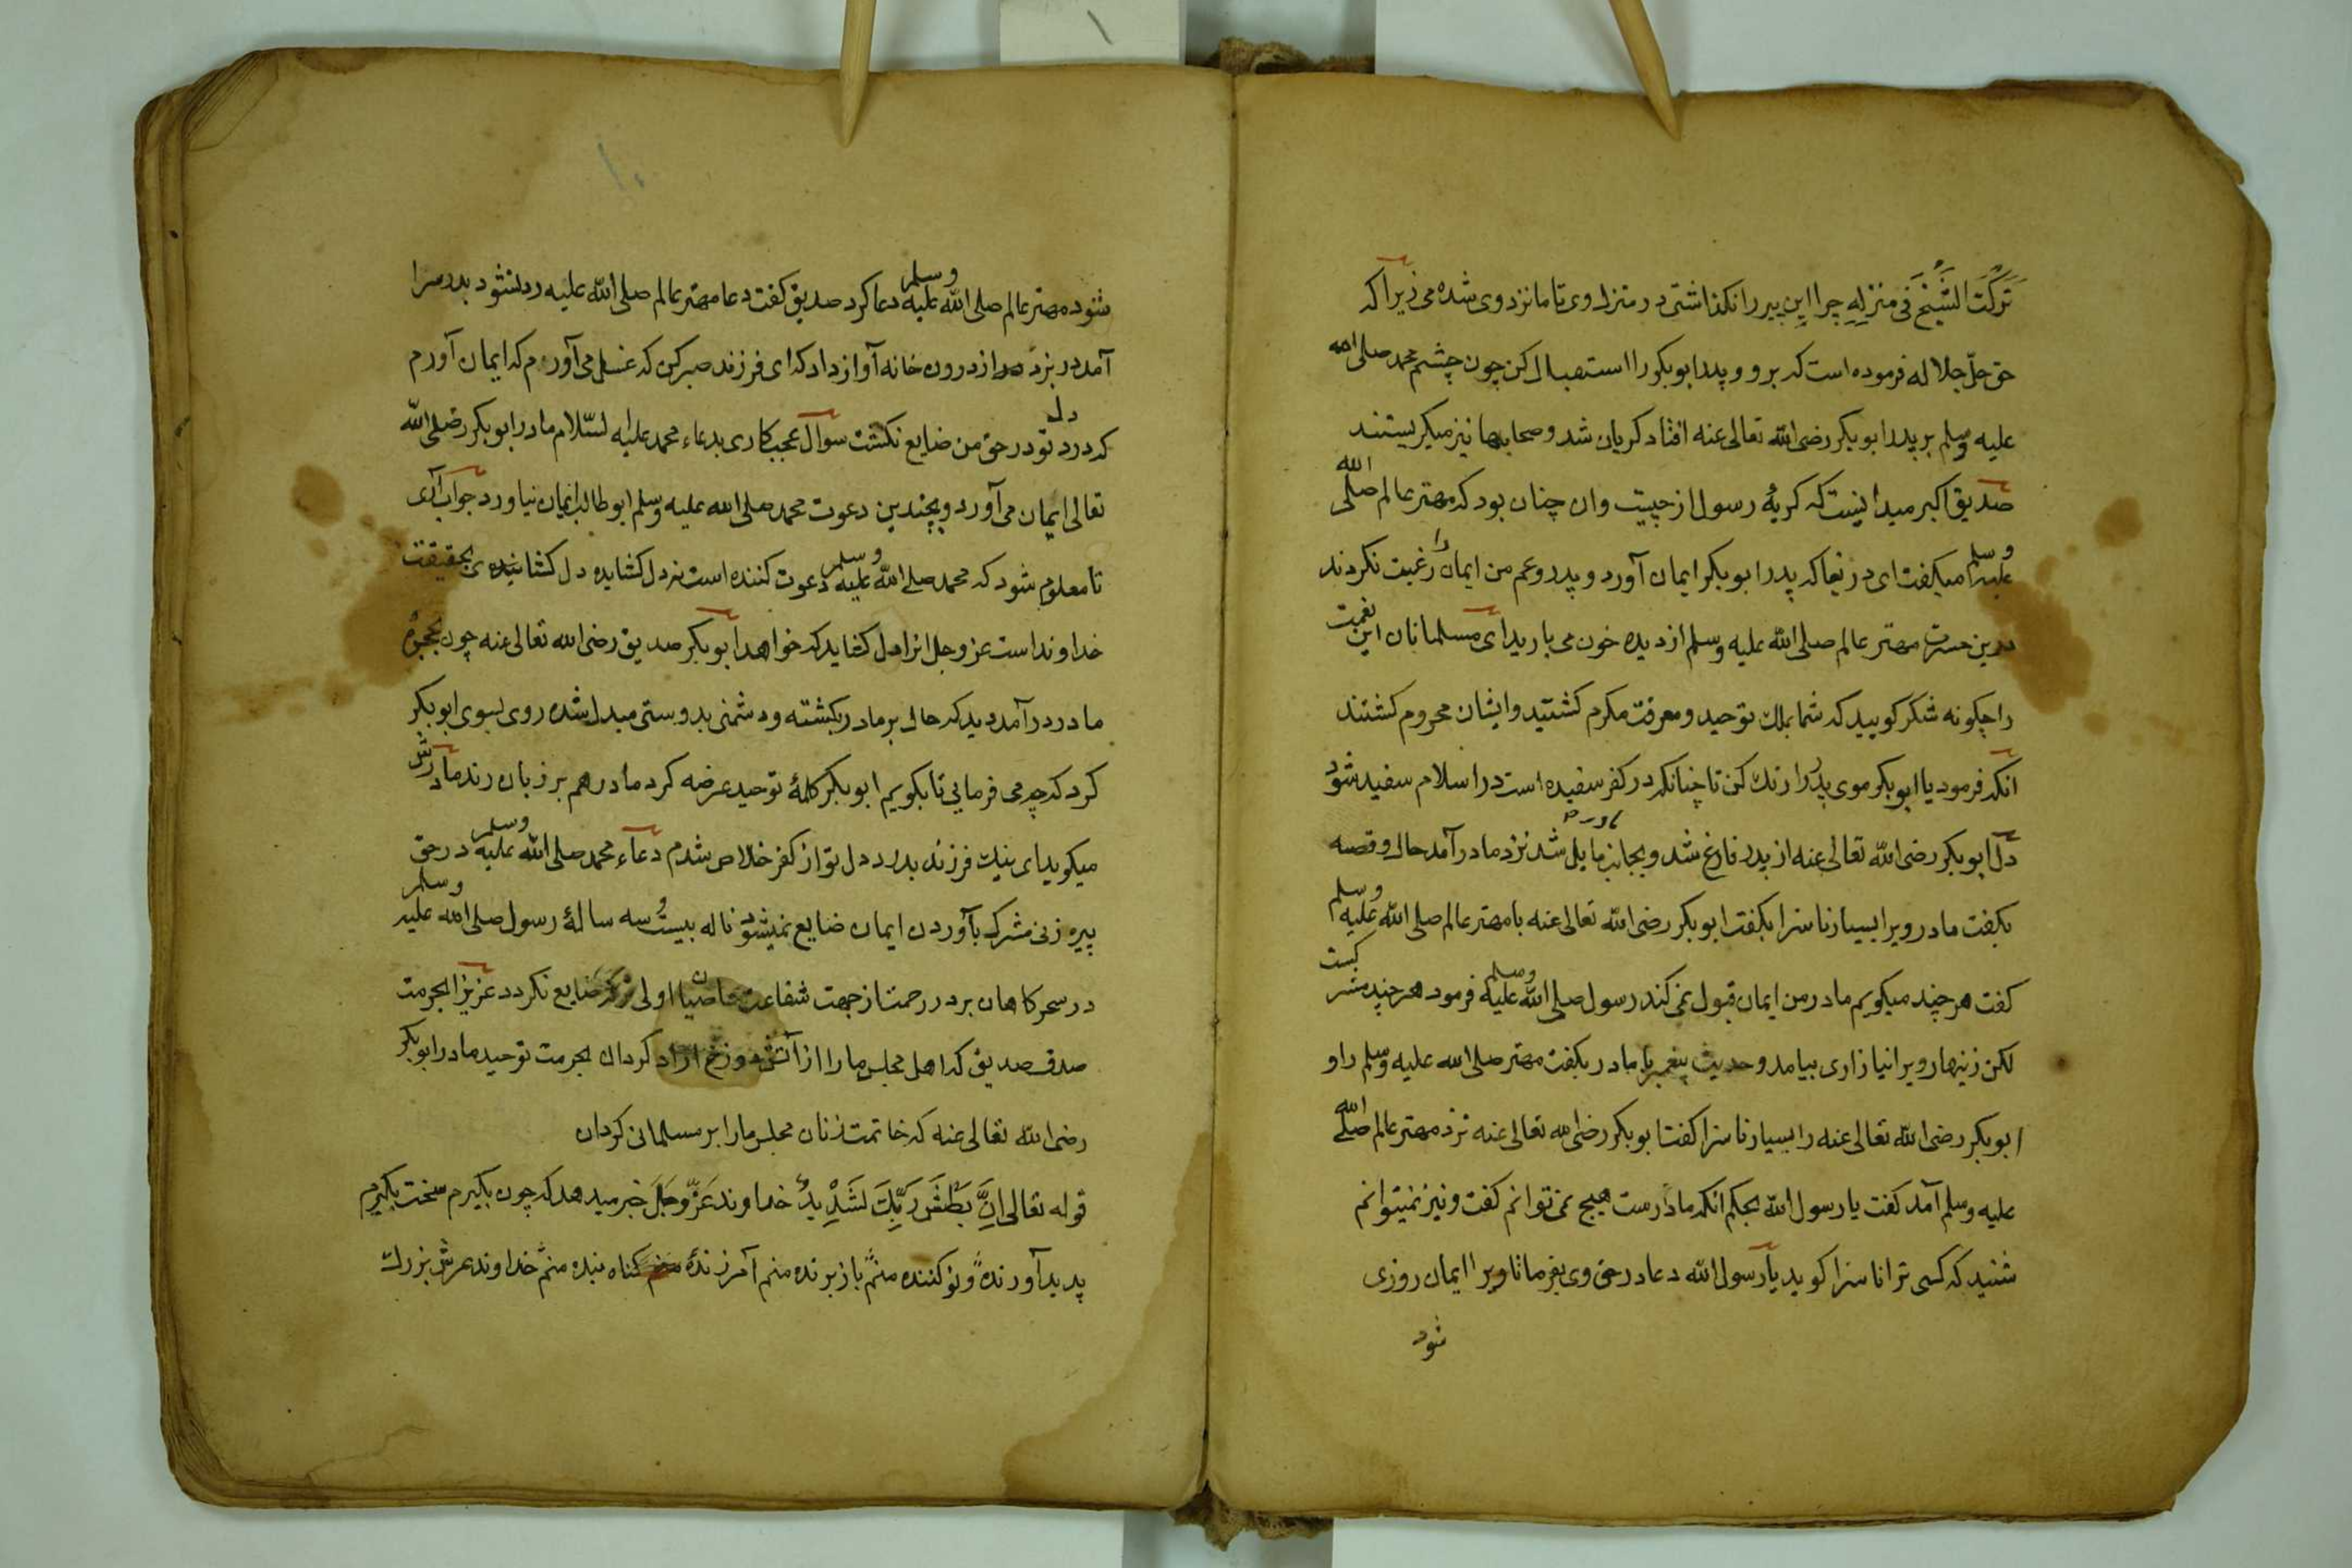 تَرَكْتَ الشَّيْخَ فى منزلِهِ چرا این پیر را نکذاشتی در منزل وی تا ما نزد وی شده می زیرا که
حق جلّ جلاله فرموده است که برو و پدر ابوبکر را استقبال کن چون چشم محمد صلی الله
علیه وسلم بر پدر ابوبکر رضی الله تعالی عنه افتاد کریان شد و صحابها نیز میکریستند
صدیق اکبر میدانیست که کریهٔ رسول از چیست وان چنان بود که مهتر عالم صلی الله
علیه وسلم میکفت ای دریغا که پدر ابوبکر ایمان آورد و پدر و عم من ایمان را رغبت نکردند
درین حسرت مهتر عالم صلی الله علیه وسلم از دیده خون می بارید ای مسلمانان این نعمت
را چکونه شکر کویید که شما بملك توحید و معرفت مکرم کشتید و ایشان محروم کشتند
انکه فرمود یا ابوبکر موی پدر را رنك کن تا چنانکه در کفر سفیده است در اسلام سفید شود
دل ابوبکر رضی الله تعالی عنه از پدر فارغ شد و بجانب مادر مایل شد نزد مادر آمد حال و قصه
بکفت مادر ویرا بسیار ناسزا بکفت ابوبکر رضی الله تعالی عنه با مهتر عالم صلی الله علیه وسلم
کفت هر چند میکویم مادر من ایمان قبول نمی کند رسول صلی الله علیه وسلم فرمود هر چند مشرکست
لکن زینهار ویرا نیازاری بیامد و حدیث پیغمبر با مادر بکفت مهتر صلی الله علیه وسلم را و
ابوبکر رضی الله تعالی عنه را بسیار ناسزا کفت ابوبکر رضی الله تعالی عنه نزد مهتر عالم صلی الله
علیه وسلم آمد کفت یا رسول الله بحکم انکه مادرست هیچ نمی توانم کفت و نیز نمیتوانم
شنید که کسی ترا ناسزا کوید یا رسول الله دعا در حق وی بفرما تا ویرا ایمان روزی
شود
شود مهتر عالم صلی الله علیه وسلم دعا کرد صدیق کفت دعا مهتر عالم صلی الله علیه رد نشود بدر سرا
آمد در بزد مادر از درون خانه آواز داد که ای فرزند صبر کن که غسل می آورم که ایمان آورم
که درد دل تو در حق من ضایع نکشت سوال عجب کاری بدعاء محمد علیه السّلام مادر ابوبکر رضی الله
تعالی ایمان می آورد و بچندین دعوت محمد صلی الله علیه وسلم ابو طالب ایمان نیاورد جواب آری
تا معلوم شود که محمد صلی الله علیه وسلم دعوت کننده است نه دل کشاینده دل کشاینده بحقیقت
خداوند است عز وجل انرا دل کشاید که خواهد ابوبکر صدیق رضی الله تعالی عنه چون بحجرهٔ
مادر درآمد دید که حال بر مادر بکشته و دشمنی بدوستی مبدل شده روی بسوی ابوبکر
کرد که چه می فرمایی تا بکویم ابوبکر کلمهٔ توحید عرضه کرد مادر هم بر زبان راند مادرش
میکوید ای نیك فرزند بدرد دل تو از کفر خلاص شدم دعاء محمد صلی الله علیه وسلم در حق
پیره زنی مشرك بآوردن ایمان ضایع نمیشود ناله بیست و سه سالهٔ رسول صلی الله علیه وسلم
در سحر کاهان بر در رحمت از جهت شفاعت عاصیان اولی ترکه ضایع نکردد عزیزا بحرمت
صدق صدیق که اهل مجلس ما را از آتش دوزخ ازاد کردان بحرمت توحید مادر ابوبکر
رضی الله تعالی عنه که خاتمت زنان مجلس ما را بر مسلمانی کردان
قوله تعالی اِنَّ بَطْشَ رَبِّكَ لَشَدِيدٌ خداوند عَزَّ وجَلَّ خبر میدهد که چون بکیرم سخت بکیرم
پدید آورنده و نو کننده منم باز برنده منم آمرزندهٔ کناه بنده منم خداوند عرش بزرك